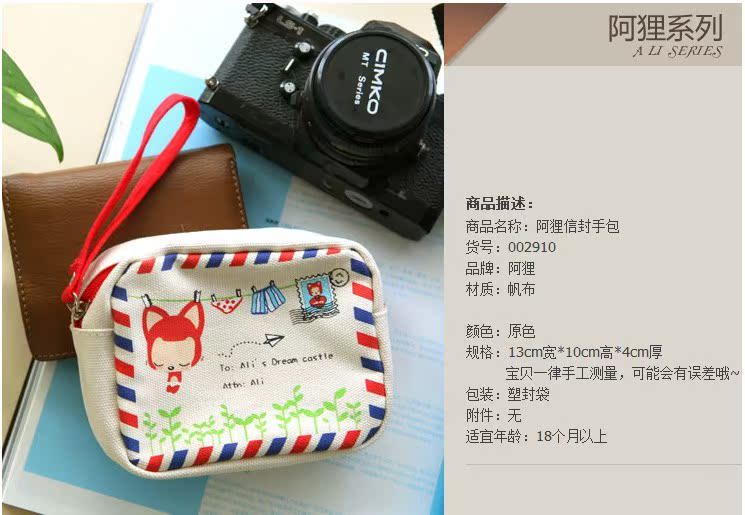 阿狸系列
A LI SERIES
CIMKO
MT Series
To: Ali's Dream castle
Attn: Ali
商品描述：
商品名称：阿狸信封手包
货号：002910
品牌：阿狸
材质：帆布
颜色：原色
规格：13cm宽*10cm高*4cm厚
宝贝一律手工测量，可能会有误差哦~
包装：塑封袋
附件：无
适宜年龄：18个月以上